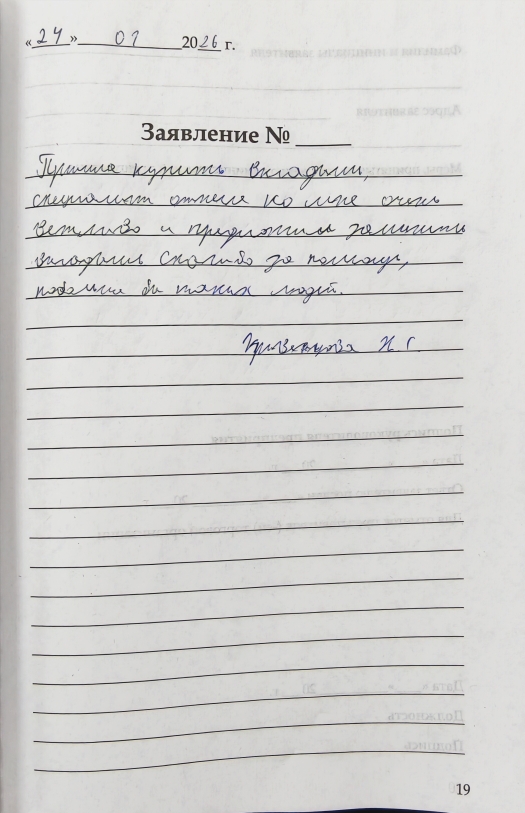 «24» 01 2026 г.
Заявление № ____
Пришла купить вкладыши,
специалист отнесся ко мне очень
вежливо и предложила заменить
вкладыши спасибо за помощь,
побольше бы таких людей.
Кривенцова Н. Г.
19